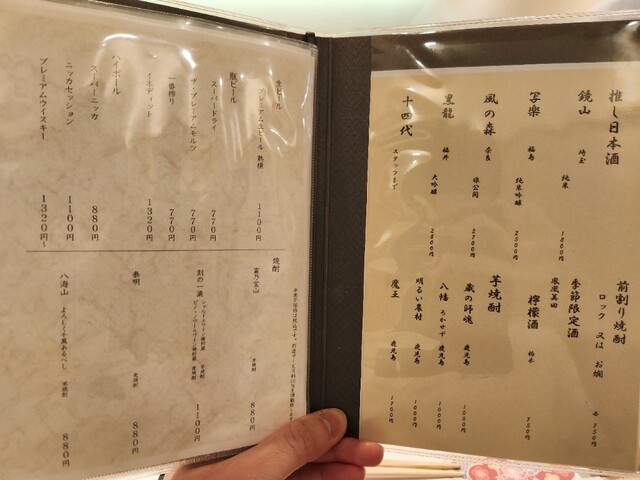 推し日本酒
鏡山 埼玉 純米 1800円
写楽 福島 純米吟醸 2500円
風の森 奈良 非公開 2100円
黒龍 福井 大吟醸 2800円
十四代 スタッフまで
前割り焼酎
ロック 又は お燗
季節限定酒
鳳凰美田
檸檬酒 栃木 750円
芋焼酎
蔵の師魂 鹿児島 1000円
八幡 ろかせず 鹿児島 1000円
明るい農村 鹿児島 1000円
魔王 鹿児島 1700円
生ビール
プレミアム生ビール 熟撰 1100円
瓶ビール
スーパードライ 770円
ザ・プレミアムモルツ 770円
一番搾り 770円
1320円
ハイボール
スーパーニッカ 880円
ニッカセッション 1100円
プレミアムウイスキー 1320円~
焼酎
富乃宝山 芋焼酎 880円
刻の一滴
麦焼酎 1100円
泰明 麦焼酎 880円
八海山 よろしく千萬あるべし 米焼酎 880円